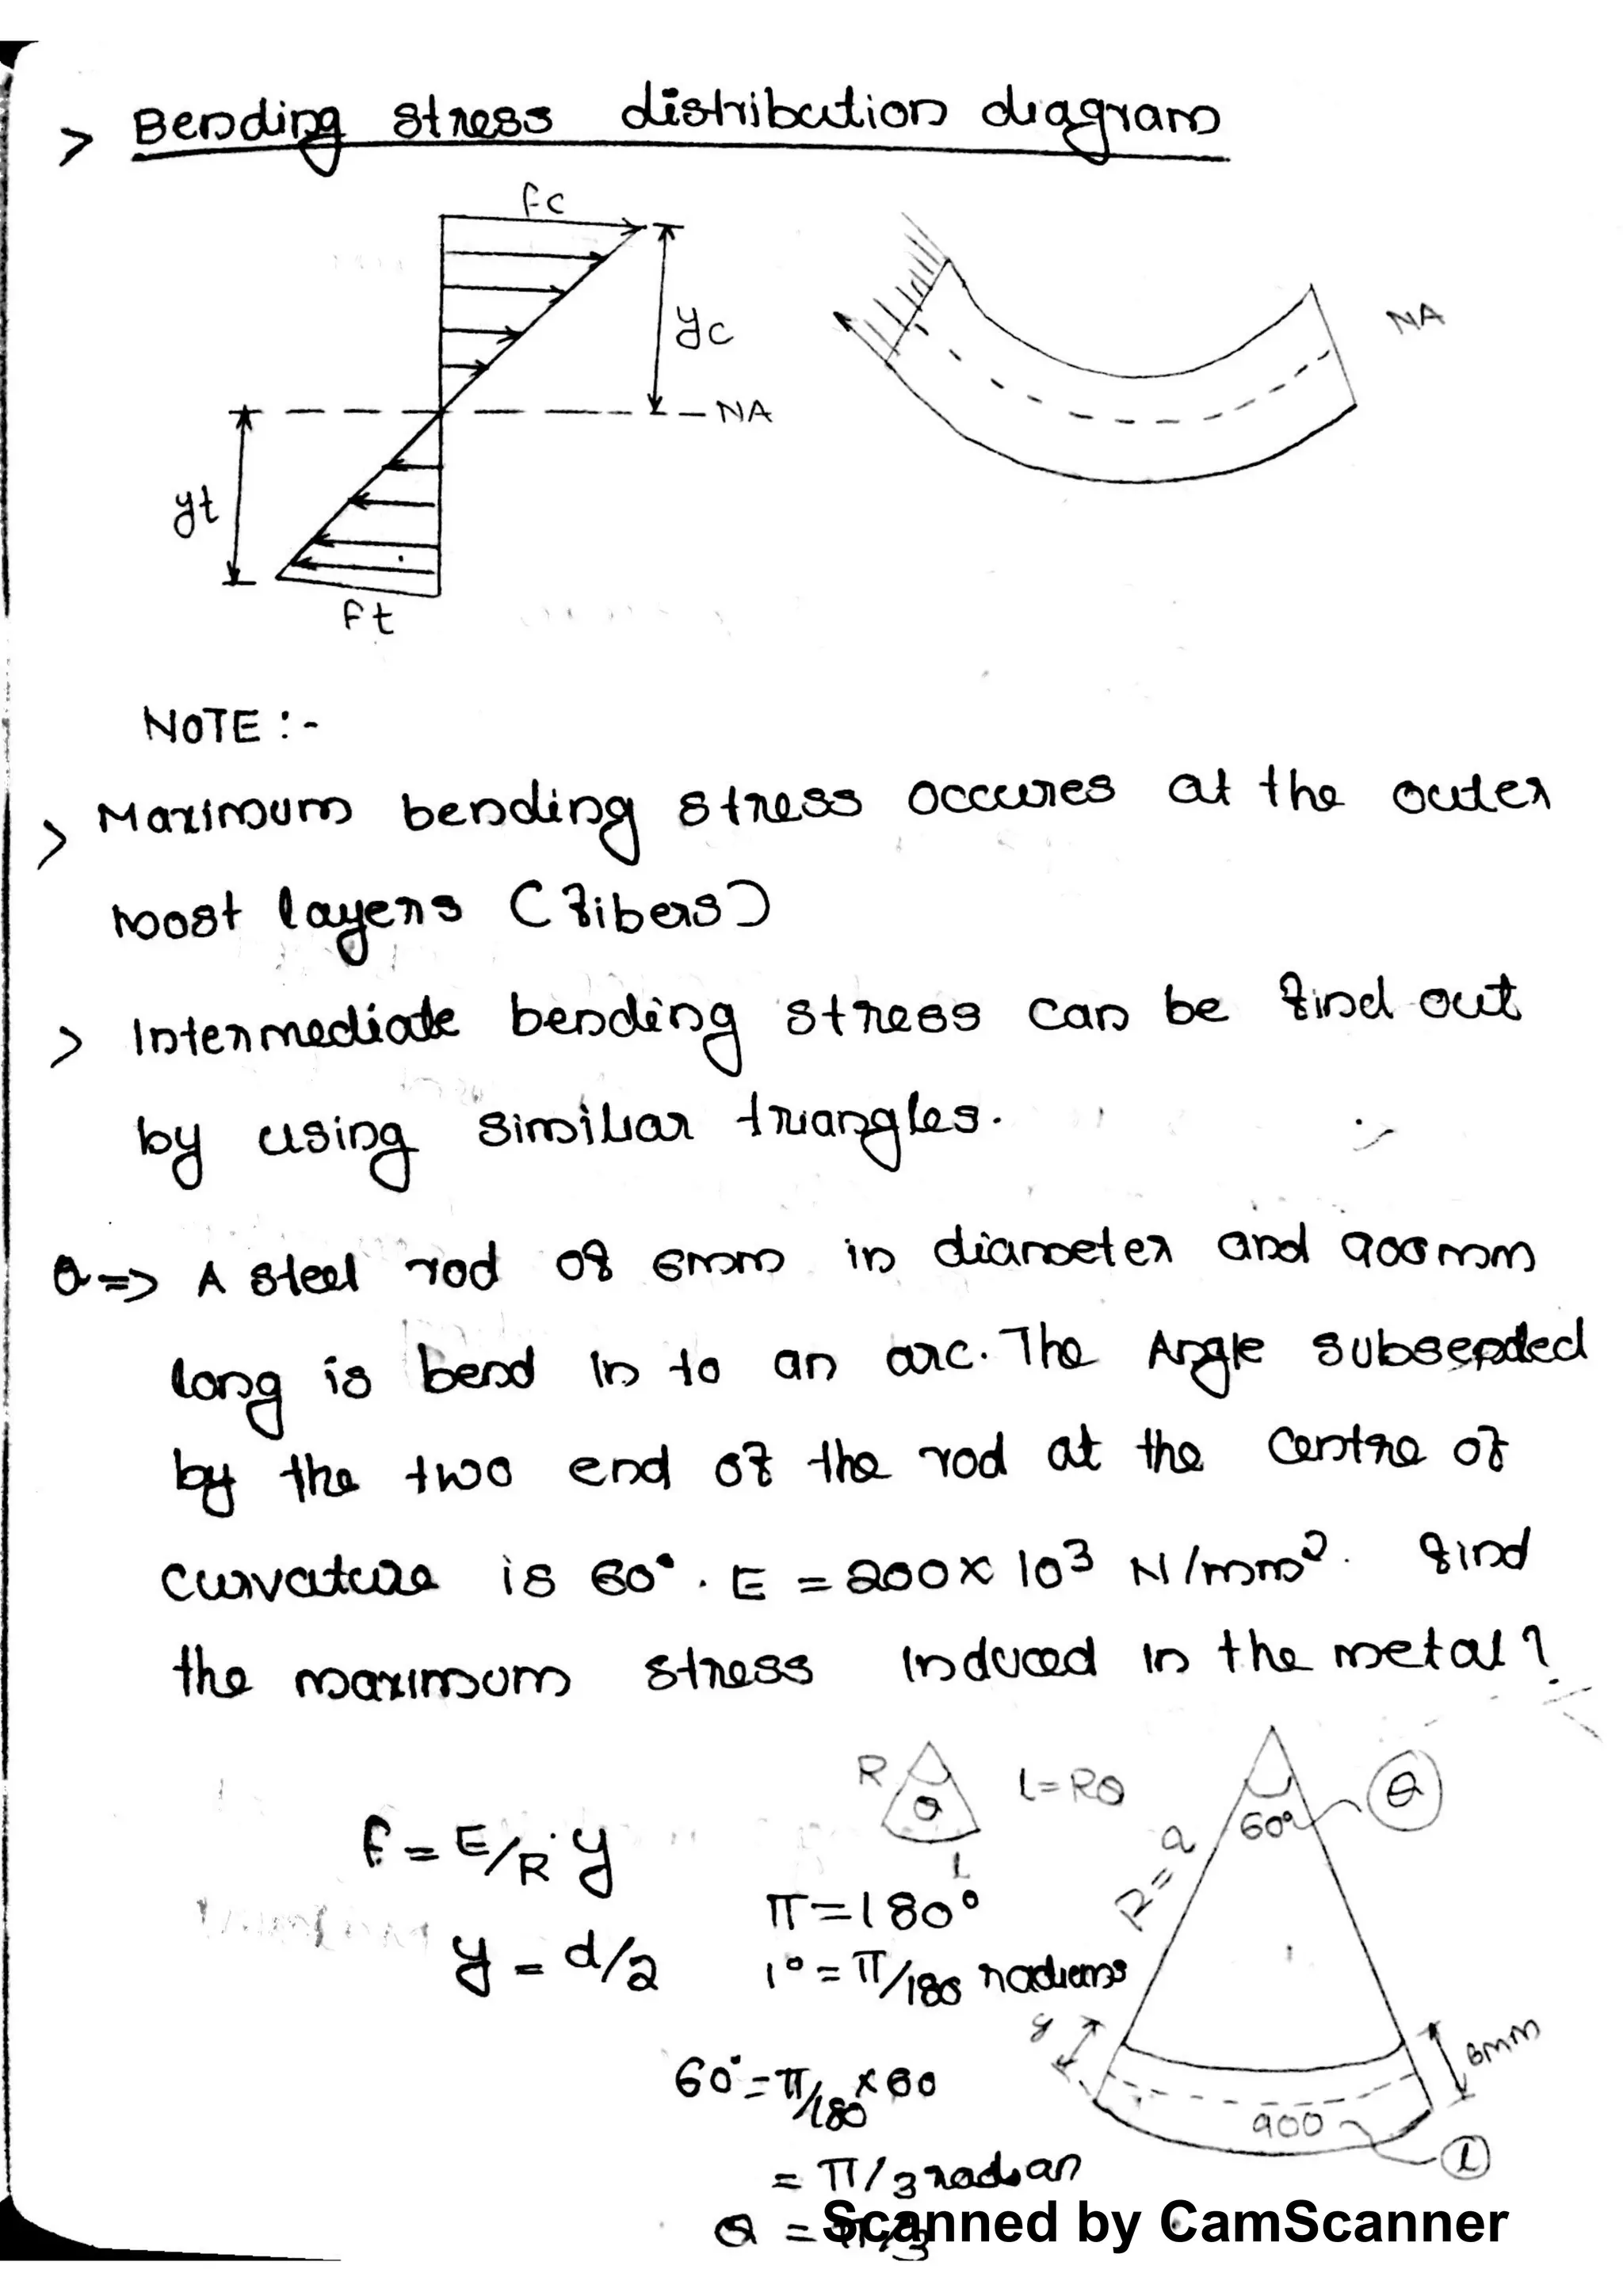 > Bending stress distribution diagram
fc
yc
NA
NA
yt
ft
NOTE :-
> Maximum bending stress occures at the outer
most layers (fibers)
> Intermediate bending stress can be find out
by using similiar triangles.
Q=> A steel rod of 6mm in diameter and 900mm
long is bend in to an arc. The Angle subsended
by the two end of the rod at the centre of
curvature is 60°. E = 200 x 10³ N/mm². find
the maximum stress induced in the metal?
R θ l
l=Rθ
60° θ
f = E/R . y
R=
π=180°
y = d/2
1° = π/180 radians
y
6mm
60° = π/180 x 60
900 l
= π/3 radian
θ = π/3
Scanned by CamScanner